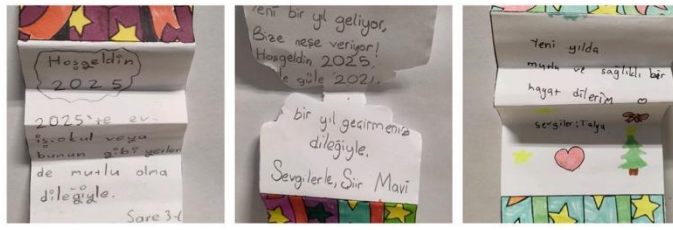 Hoşgeldin
2025
2025'te ev-
iş-okul veya
bunun gibi yerler
de mutlu olma
dileğiyle.
Sare 3-
Yeni bir yıl geliyor,
Bize neşe veriyor!
Hoşgeldin 2025.
le güle 2021.
bir yıl geçirmeniz
dileğiyle,
Sevgilerle, Şiir Mavi
Yeni yılda
mutlu ve sağlıklı bir
hayat dilerim
Sevgiler; Talya